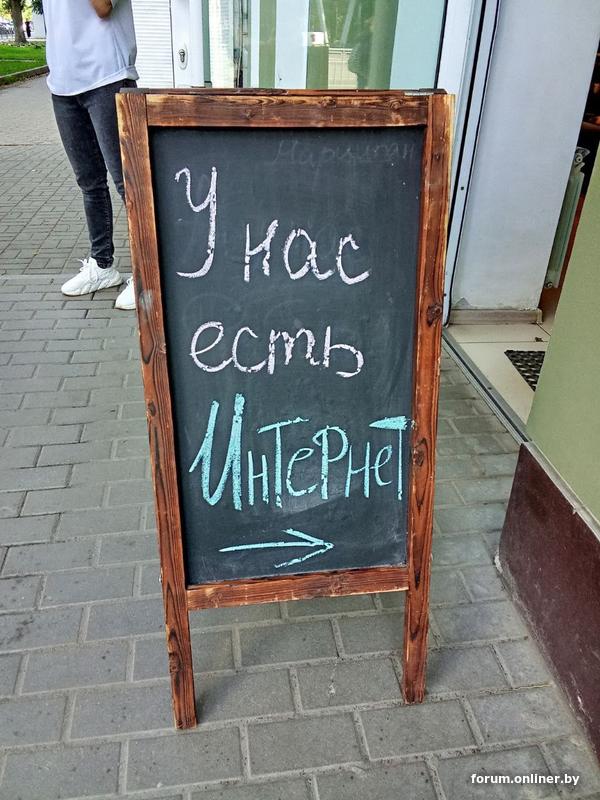 У нас
есть
Интернет
forum.onliner.by